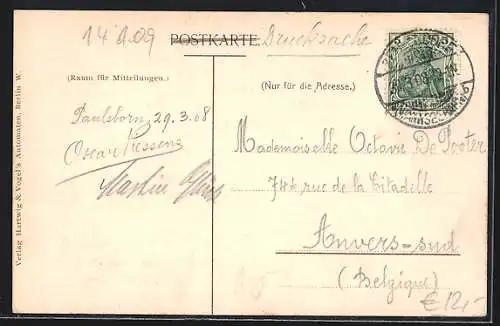 14 A 09
POSTKARTE Drucksache
(Raum für Mitteilungen.)
(Nur für die Adresse.)
Paulsborn 29.3.08
Oscar
Martin
Mademoiselle Octavie De Pooter
74 rue de la Citadelle
Anvers-sud
(Belgique)
€12,-
Verlag Hartwig & Vogel's Automaten, Berlin W.